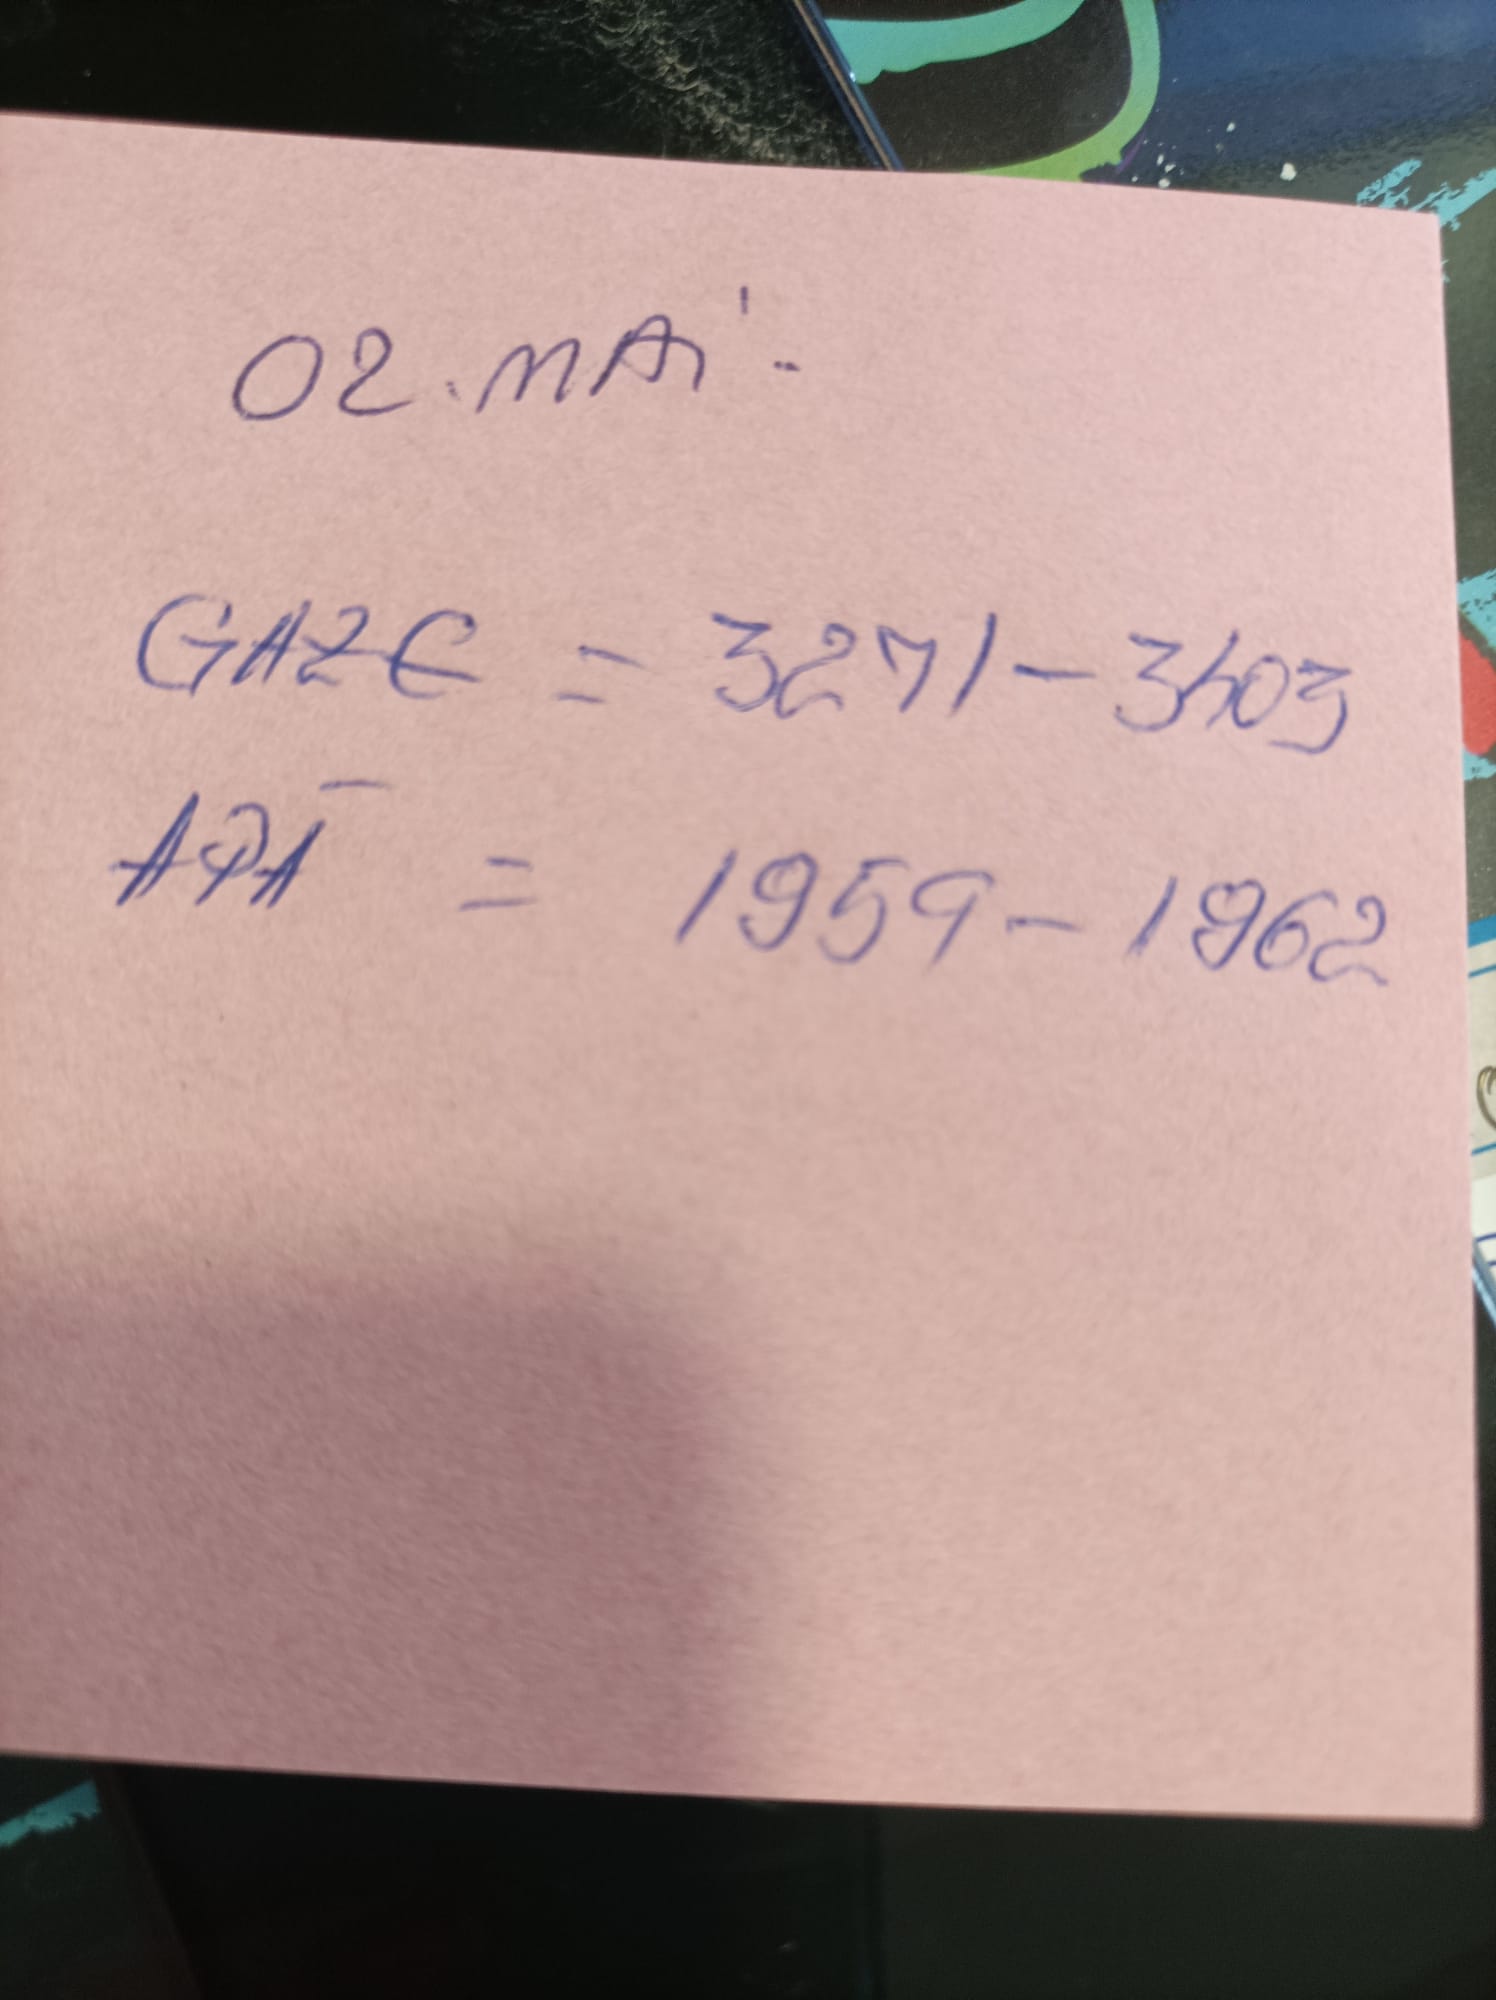 02.MAi -
GAZE = 3271 - 3403
APĀ = 1959 - 1962